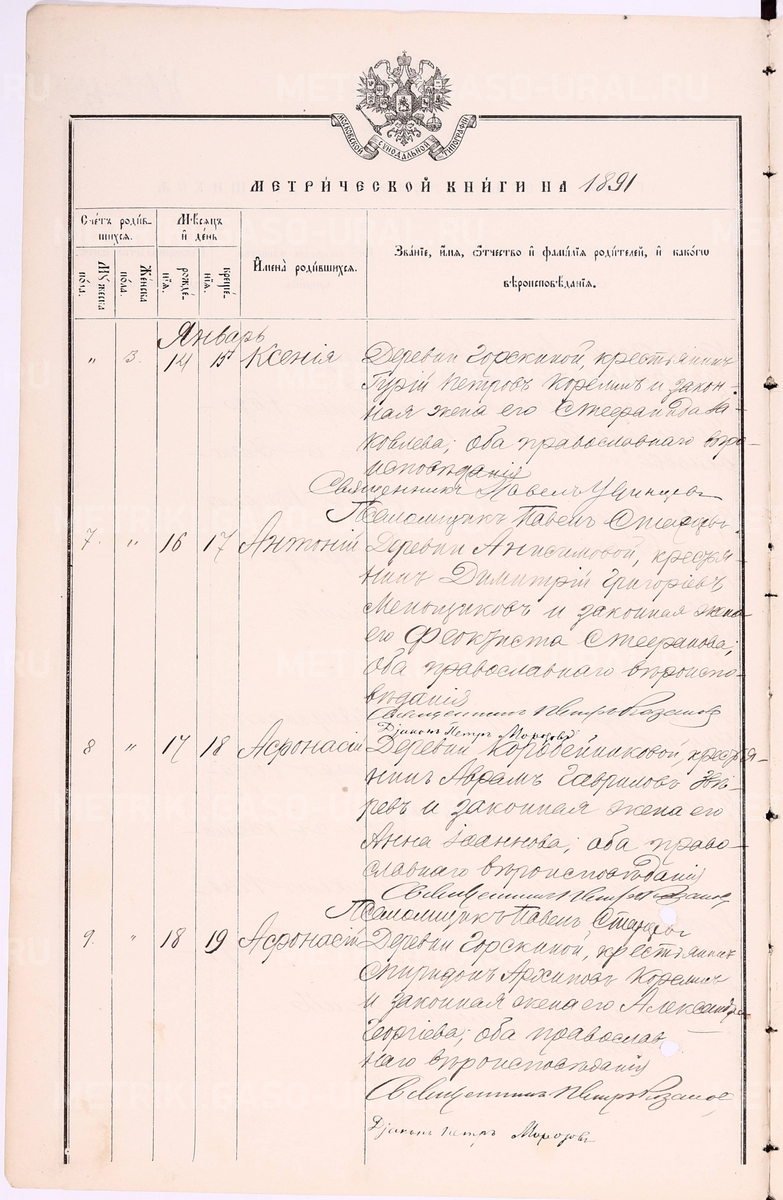 МОСКОВСКОЙ СУНОДАЛЬНОЙ ТИПОГРАФІИ
МЕТРИ́ЧЕСКОЙ КНИ́ГИ НА 1891
Сче́тъ роди́в-
шихся.
Мѣсяцъ
и день
Имена̀ роди́вшихся.
Зва́нїе, и́мя, ѻ҆́тчество и фамилїѧ роди́телей, и како́гѡ
вѣроисповѣданїѧ.
Мужеска
по́ла.
Же́нска
по́ла.
рожде-
нїѧ.
креще-
нїѧ.
Январь
" 3. 14 15 Ксенія Деревни Горскиной, крестьянинъ
Гурій Петровъ Корелинъ и закон-
ная жена его Стефанида Я-
ковлева; оба православнаго вѣро-
исповѣданія
Священникъ Павелъ Удинцевъ
Псаломщикъ Павелъ Старцевъ.
7. " 16 17 Антоній Деревни Анисимовой, крестья-
нинъ Димитрій Григоріевъ
Меньщиковъ и законная жена
его Феоктиста Стефанова;
оба православнаго вѣроиспо-
вѣданія
Священникъ Петръ
Діаконъ Петръ Морозовъ
8 " 17 18 Афонасій Деревни Коробейниковой, крестья-
нинъ Аврамъ Гавриловъ Звѣ-
ревъ и законная жена его
Анна Іоаннова; оба право-
славнаго вѣроисповѣданія
Священникъ Петръ
Псаломщикъ Павелъ Старцевъ
9. " 18 19 Афонасій Деревни Горскиной, крестьянинъ
Спиридонъ Архиповъ Корелинъ
и законная жена его Александра
Георгіева; оба православ
наго вѣроисповѣданія
Священникъ Петръ
Діаконъ Петръ Морозовъ